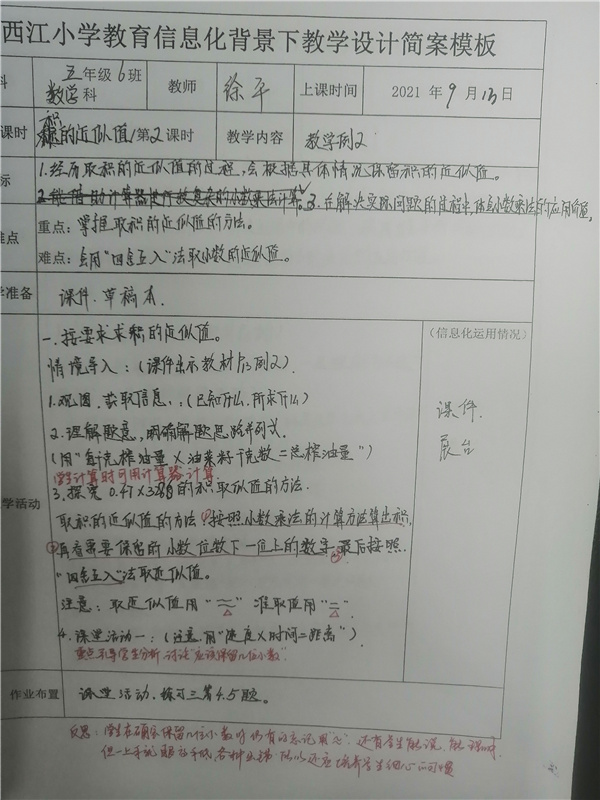 西江小学教育信息化背景下教学设计简案模板
科 五年级6班 数学科 教师 徐平 上课时间 2021 年 9 月 13 日
课时 积的近似值/第2课时 教学内容 教学例2
标 1.经历取积的近似值的过程,会根据具体情况保留积的近似值。
2.能借助计算器进行较复杂的小数乘法计算。3.在解决实际问题的过程中,体会小数乘法的应用价值。
难点 重点:掌握取积的近似值的方法。
难点:会用"四舍五入"法取小数的近似值。
学准备 课件.草稿本.
一.按要求求积的近似值。
(信息化运用情况)
情境导入:(课件出示教材P13例2)
1.观图.获取信息.:(已知什么.所求什么)
课件.
展台
2.理解题意,明确解题思路并列式.
(用"每千克榨油量×油菜籽千克数=总榨油量")
学生计算时可用计算器计算.
学活动
3.探究 0.47×3286的积取似值的方法.
取积的近似值的方法①按照小数乘法的计算方法算出积.
②再看需要保留的小数位数下一位上的数字.③最后按照.
"四舍五入"法取近似值。
注意:取近似值用"≈" 准取值用"="
4.课堂活动一:(注意.用"速度×时间=距离")
重点引导学生分析.讨论"应该保留几位小数"
作业布置 课堂活动.练习三第4.5题。
反思:学生在确定保留几位小数时仍有的忘记用"≈".还有学生能说,能理解
但一上手
所以还应培养学生细心